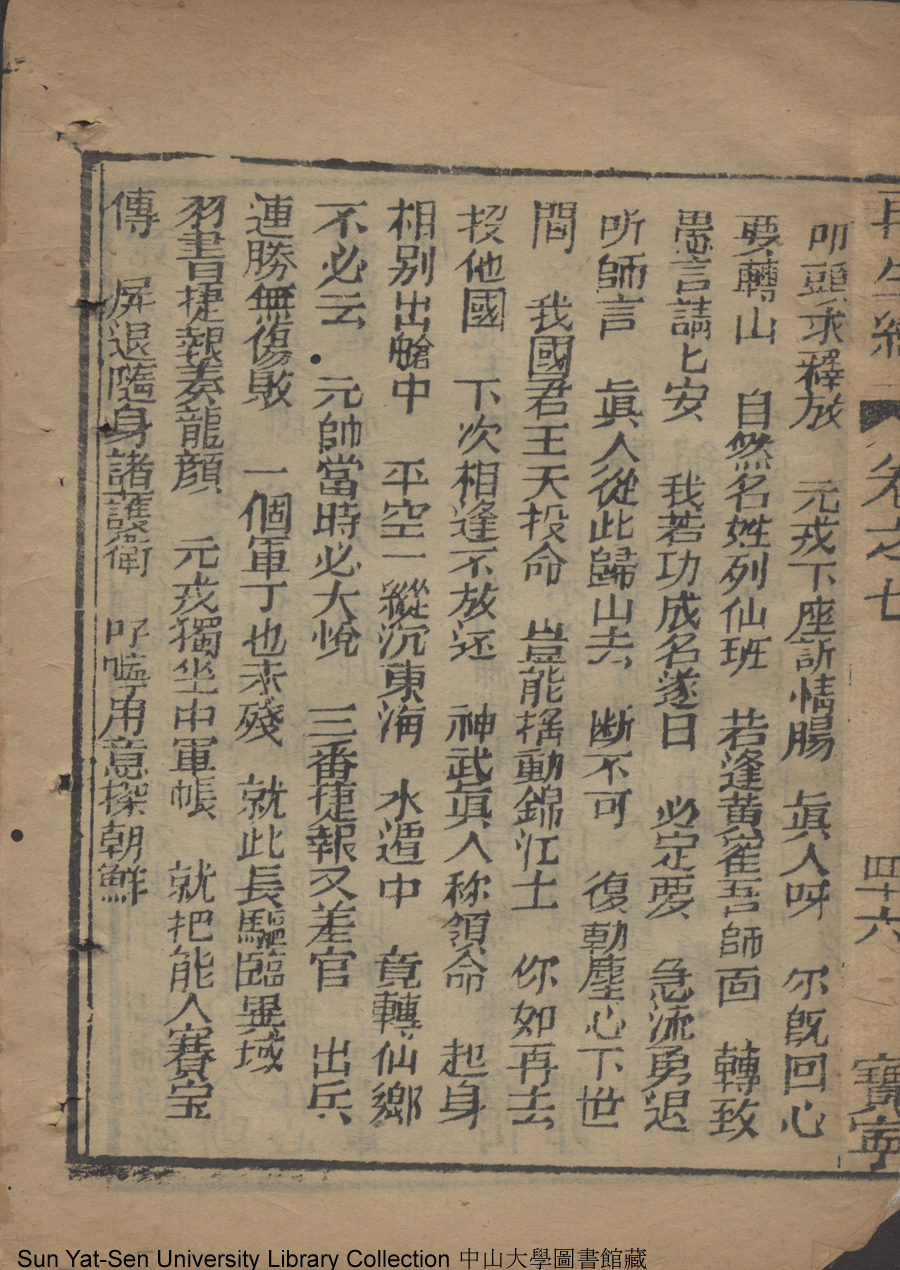 再生緣 卷之七 四十六 寶寧
叩頭求釋放 元戎下座訴情腸 眞人呀 尔旣回心
要轉山 自然名姓列仙班 若逢黄寉吾師面 轉致
愚言請匕安 我若功成名遂日 必定要 急流勇退
听師言 眞人從此歸山去 断不可 復動塵心下世
間 我國君王天投命 豈能揺動錦江土 你如再去
投他國 下次相逢不放还 神武眞人称領命 起身
相别出艙中 平空一縱沉東海 水遁中 竟轉仙鄉
不必云 元帥當時必大悅 三番捷報又差官 出兵
連勝無傷敗 一個軍丁也未殘 就此長驅臨異域
羽書捷報奏龍顔 元戎獨坐中軍帳 就把能人賽宝
傳 屏退隨身諸護衛 吁嚧用意探朝鮮
Sun Yat-Sen University Library Collection 中山大學圖書館藏